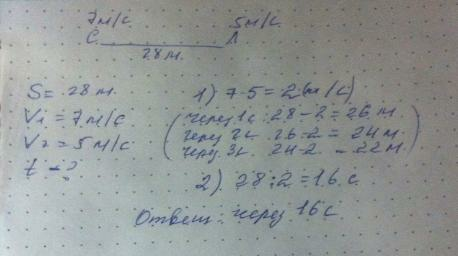 7м/с 5м/с
С Л
28 м.
S = 28 м.
V₁ = 7 м/с
V₂ = 5 м/с
t - ?
1) 7-5=2(м/с)
(через 1с 28-2=26 м.
через 2с. 26-2=24 м.
через 3с. 24-2=22м.)
2) 28:2=16 с.
Ответ: через 16 с.